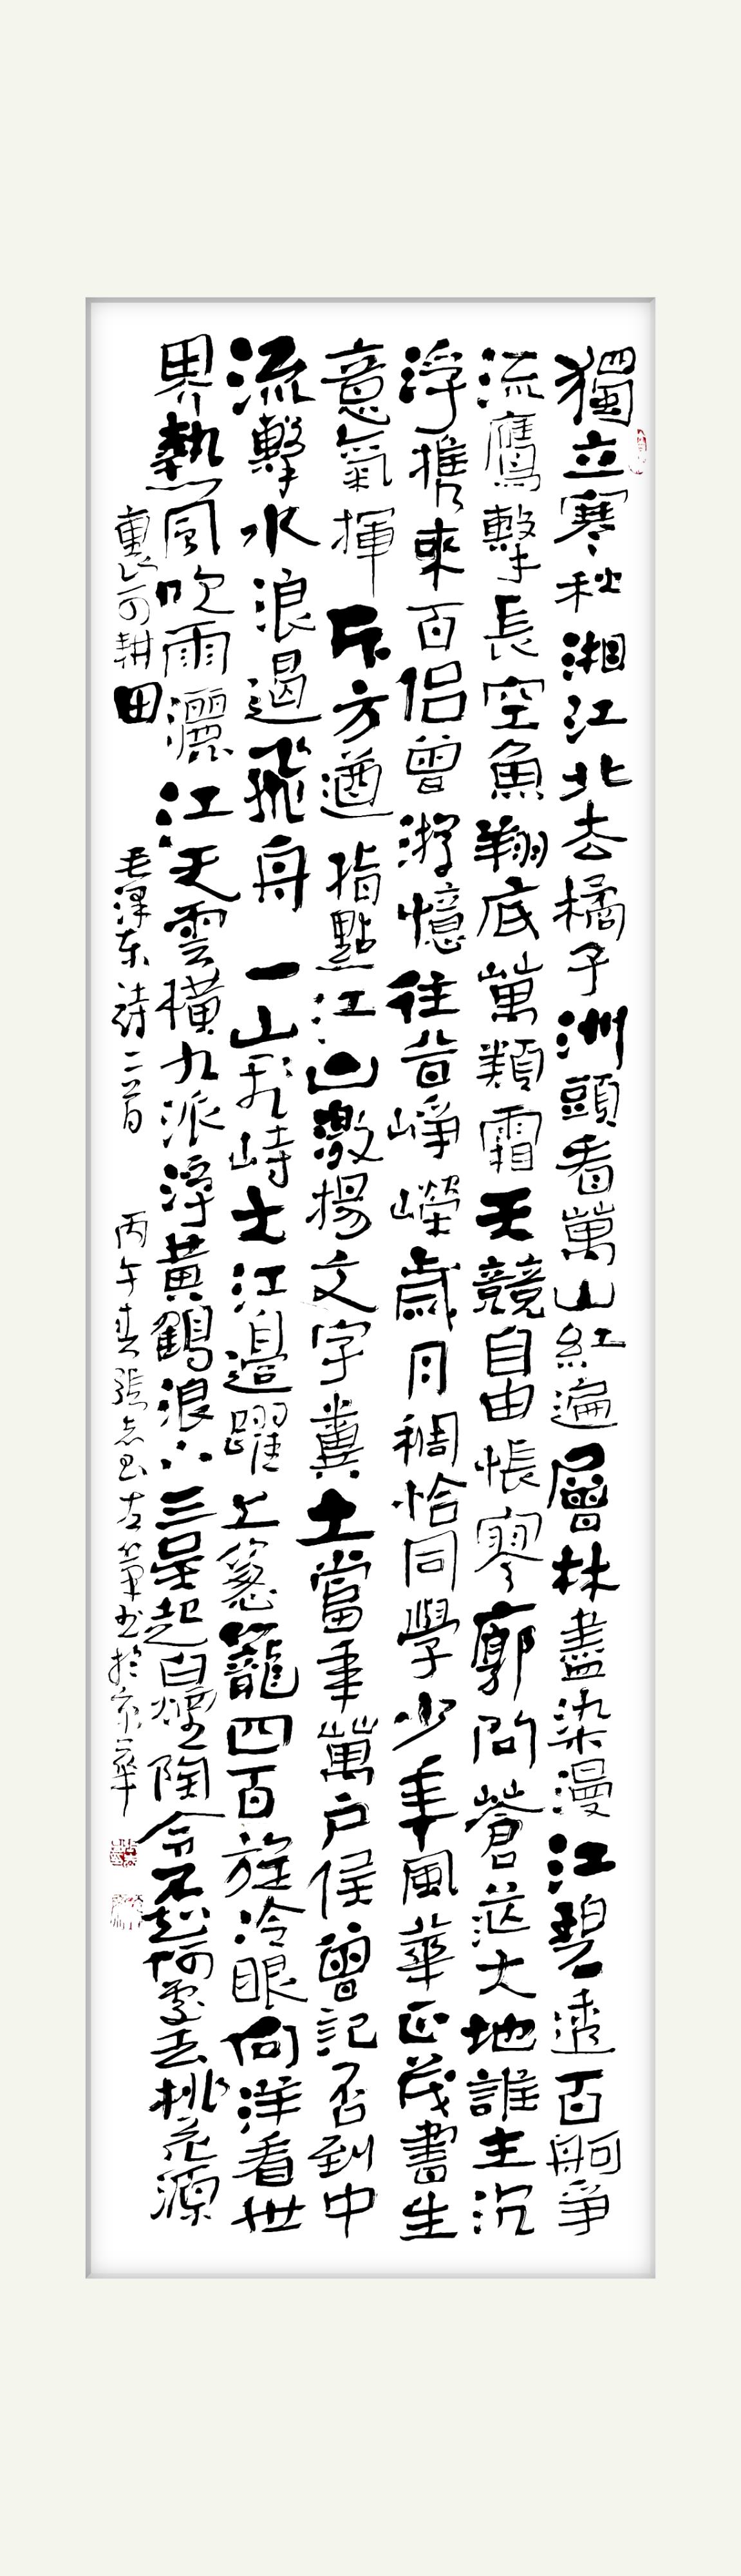 獨立寒秋湘江北去橘子洲頭看萬山紅遍層林盡染漫江碧透百舸爭
流鷹擊長空魚翔底萬類霜天競自由悵寥廓問蒼茫大地誰主沉
浮携來百侶曾游憶往昔崢嶸歲月稠恰同學少年風華正茂書生
意氣揮斥方遒指點江山激揚文字糞土當年萬戶侯曾記否到中
流擊水浪遏飛舟 一山飛峙大江邊躍上蔥蘢四百旋冷眼向洋看世
界熱風吹雨灑江天雲橫九派浮黃鶴浪下三吳起白煙陶令不知何處去桃花源
裏可耕田 毛澤东詩二首 丙午春張志左筆书於京華